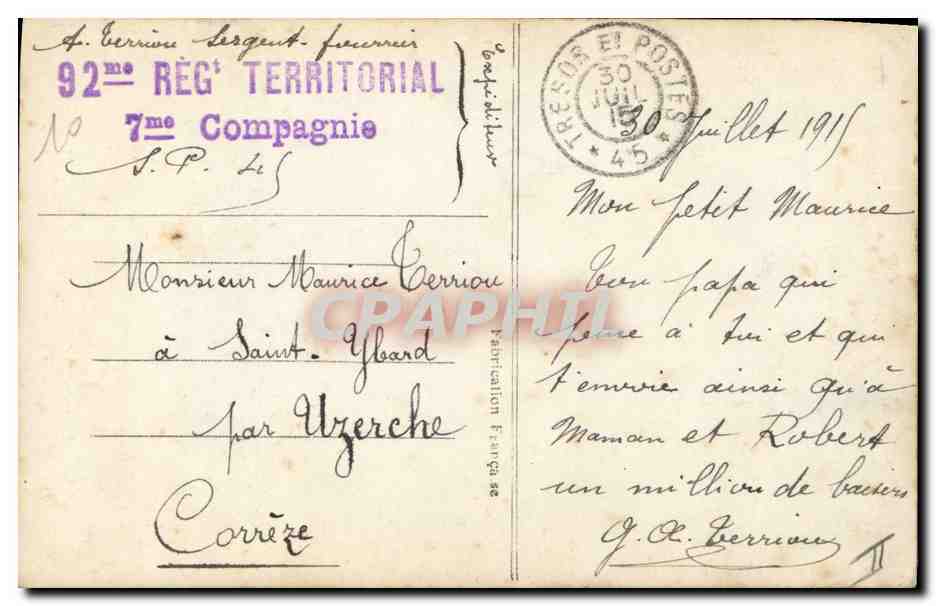 A. Terriou Sergent-fourrier
92me RÉGt TERRITORIAL
7me Compagnie
S. P. 45
Expéditeur
TRESOR ET POSTES
30
JUIL
15
* 45 *
30 Juillet 1915
Mon petit Maurice
Ton papa qui
pense à toi et qui
t'envoie ainsi qu'à
Maman et Robert
un million de baisers
G. A. Terriou
II
Monsieur Maurice Terriou
à Saint-Ybard
par Uzerche
Corrèze
Fabrication Française
CPAPHIL
10